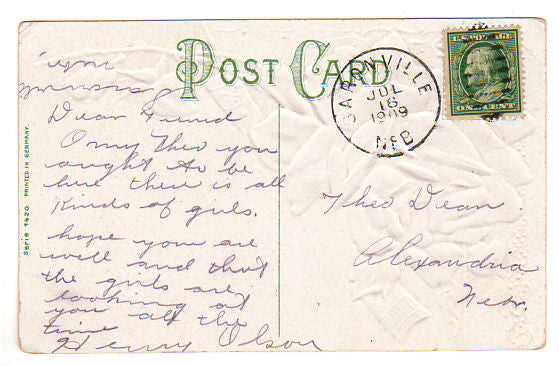 POST CARD
Dear Friend
O my Theo you
aught to be
here there is all
kinds of girls.
hope you are
well and that
the girls are
looking at
you all the
time
Henry Olson
Theo Dean
Alexandria
Nebr.
CARRNVILLE
JUL
16
1909
NEB
ONE CENT
Serie 1420. PRINTED IN GERMANY.